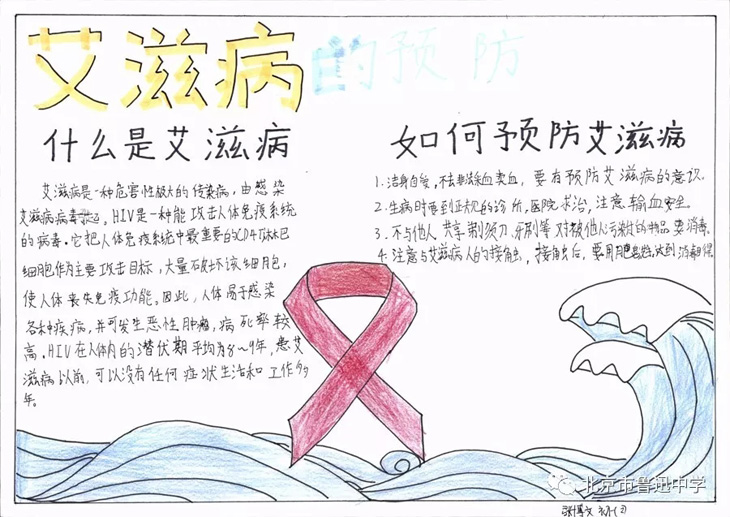 艾滋病的预防
什么是艾滋病
艾滋病是一种危害性极大的传染病,由感染
艾滋病病毒引起。HIV是一种能攻击人体免疫系统
的病毒。它把人体免疫系统中最重要的CD4T淋巴
细胞作为主要攻击目标,大量破坏该细胞,
使人体丧失免疫功能。因此,人体易于感染
各种疾病,并可发生恶性肿瘤,病死率较
高。HIV在人体内的潜伏期平均为8~9年,患艾
滋病以前,可以没有任何症状生活和工作多
年。
如何预防艾滋病
1.洁身自爱,不去非法采血卖血,要有预防艾滋病的意识。
2.生病时要到正规的诊所,医院求治,注意输血安全。
3.不与他人共享剃须刀、牙刷等 对被他人污染过的物品要消毒。
4.注意与艾滋病人的接触,接触后,要用肥皂
北京市鲁迅中学